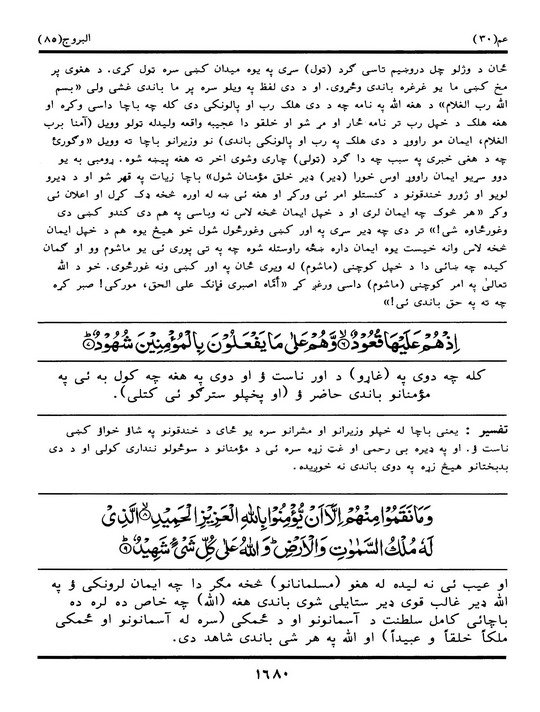 عم(٣٠) البروج(٨٥)
ځان د وژلو چل دروښیم تاسی گرد (ټول) سړی په یوه میدان کښی سره ټول کړی. د هغوی پر
مخ کښی ما یو غرغره باندی وځړوی. او د دی لفظ په ویلو سره پر ما باندی غشی ولی «بسم
الله رب الغلام» د هغه الله په نامه چه د دی هلک رب او پالونکی دی کله چه باچا داسی وکړه او
هغه هلک د خپل رب تر نامه ځار او مړ شو او خلقو دا عجیبه واقعه ولیدله ټولو وویل (آمنا برب
الغلام، ایمان مو راووړ د دی هلک په رب او پالونکی باندی) نو وزیرانو باچا ته وویل «وگورئ
چه د هغی خبری په سبب چه دا گرد (ټولی) چاری وشوی اخر ته هغه پیښه شوه. ړومبی به یو
دوو سړیو ایمان راووړ اوس خورا (ډیر) ډیر خلق مؤمنان شول» باچا زیات په قهر شو او د ډیرو
لویو او ژورو خندقونو د کنستلو امر ئی ورکړ او هغه ئی ښه له اوره څخه ډک کړل او اعلان ئی
وکړ «هر څوک چه ایمان لری او د خپل ایمان څخه لاس نه وباسی په هم دی کندو کښی دی
وغورځاوه شی!» تر دی چه ډیر سړی په اور کښی وغورځول شول خو هیڅ یوه هم د خپل ایمان
څخه لاس وانه خیست یوه ایمان داره ښځه راوستله شوه چه په تی پوری ئی یو ماشوم وو او گمان
کیده چه ښائی دا د خپل کوچنی (ماشوم) له ویری ځان په اور کښی ونه غورځوی. خو د الله
تعالیٰ په امر کوچنی (ماشوم) داسی ورغږ کړ «أمّاه اصبری فإنک علی الحق، مورکی! صبر کړه
چه ته په حق باندی ئی!»
اِذْهُمْ عَلَيْهَا قُعُوْدٌ ۙ۶ وَّهُمْ عَلٰى مَا يَفْعَلُوْنَ بِالْمُؤْمِنِيْنَ شُهُوْدٌ ؕ۷
کله چه دوی په (غاړو) د اور ناست ؤ او دوی په هغه چه کول به ئی په
مؤمنانو باندی حاضر ؤ (او پخپلو سترگو ئی کتلی).
تفسیر : یعنی باچا له خپلو وزیرانو او مشرانو سره یو ځای د خندقونو په شاؤ خواؤ کښی
ناست ؤ. او په ډیره بی رحمی او غټ زړه سره ئی د مؤمنانو د سوځولو ننداری کولی او د دی
بدبختانو هیڅ زړه په دوی باندی نه خوږیده.
وَمَا نَقَمُوْا مِنْهُمْ اِلَّاۤ اَنْ يُّؤْمِنُوْا بِاللّٰهِ الْعَزِيْزِ الْحَمِيْدِ ۙ۸ الَّذِىْ
لَهٗ مُلْكُ السَّمٰوٰتِ وَالْاَرْضِ ؕ وَاللّٰهُ عَلٰى كُلِّ شَىْءٍ شَهِيْدٌ ؕ۹
او عیب ئی نه لیده له هغو (مسلمانانو) څخه مگر دا چه ایمان لرونکی ؤ په
الله ډیر غالب قوی ډیر ستایلی شوی باندی هغه (الله) چه خاص ده لره ده
باچائی کامل سلطنت د آسمانونو او د ځمکی (سره له آسمانونو او ځمکی
ملکاً خلقاً و عبیداً) او الله په هر شی باندی شاهد دی.
١٦٨٠